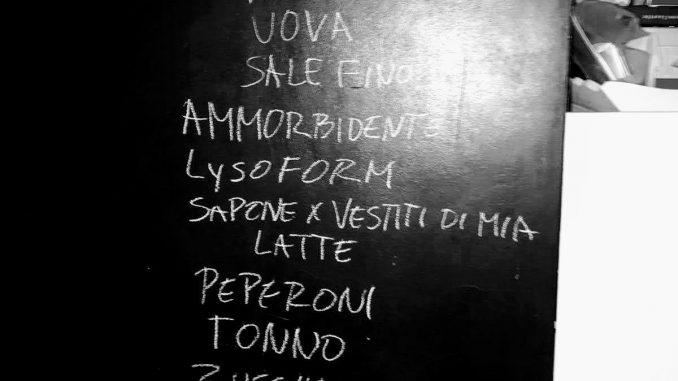 UOVA
SALE FINO
AMMORBIDENTE
LYSOFORM
SAPONE X VESTITI DI MIA
LATTE
PEPERONI
TONNO